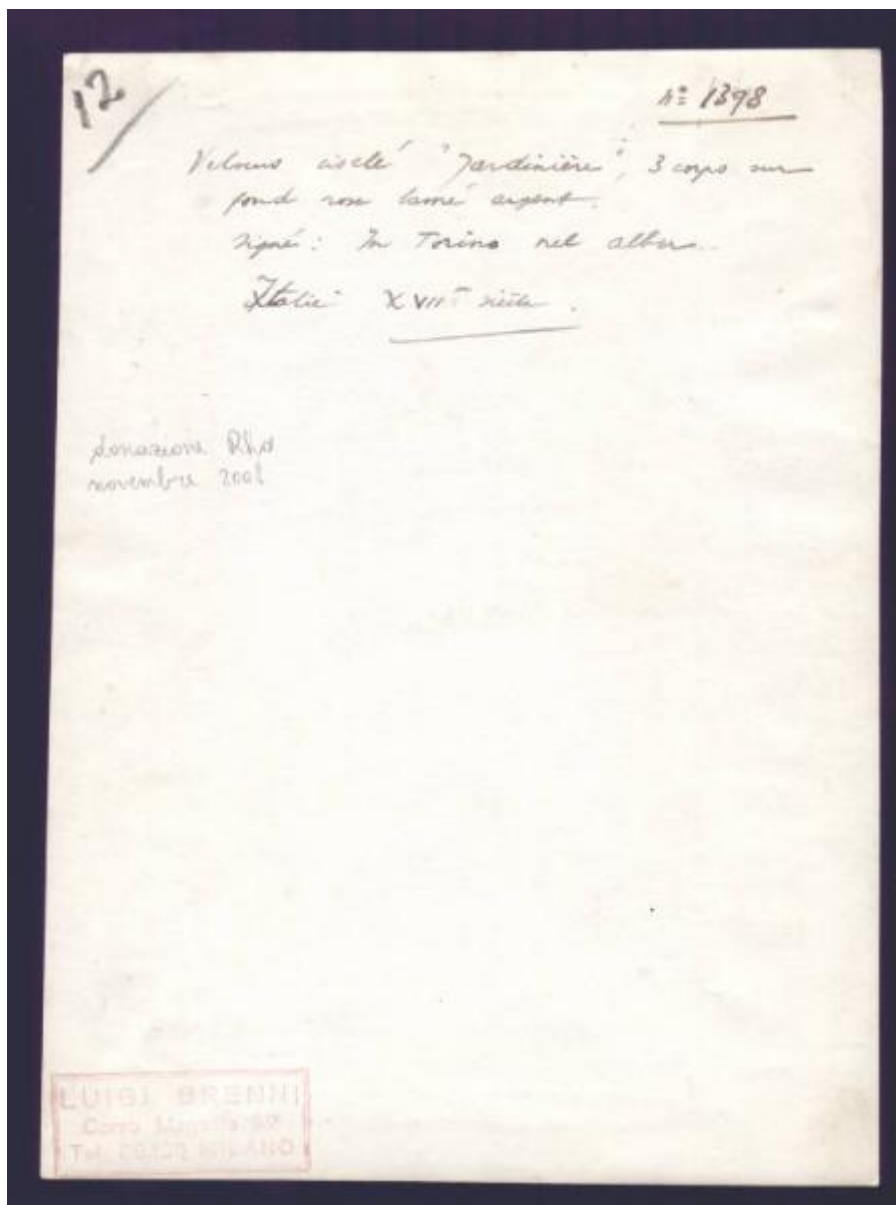 12
N° 1398
Velours ciselé "Jardinière", 3 corps sur
fond rose lamé argent.
signé: In Torino nel
Italie XVIIe siècle.
donazione Rho
novembre 2001
LUIGI BRENNI
Corso Magenta
Tel. MILANO